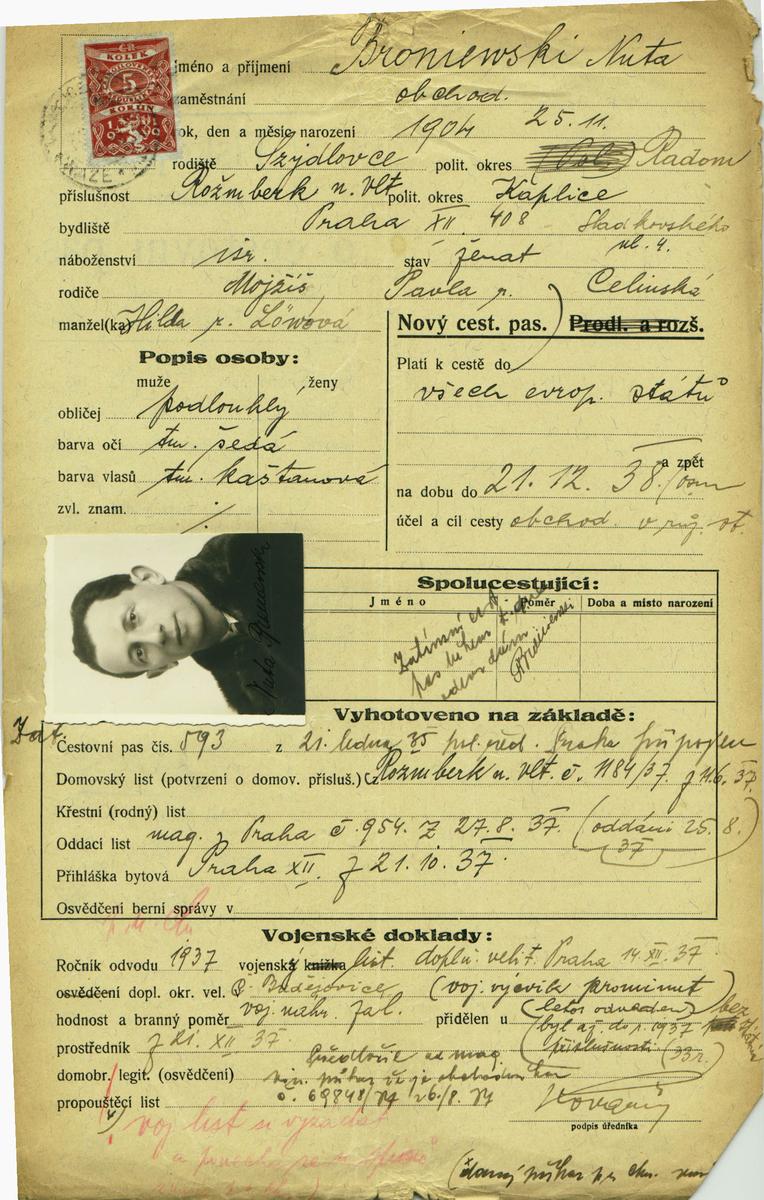 KOLEK
5
KORUN
jméno a příjmení Broniewski Nuta
zaměstnání obchod.
rok, den a měsíc narození 1904 25.11.
rodiště Szydlovce polit. okres (Pol.) Radom
příslušnost Rožmberk n. Vlt. polit. okres Kaplice
bydliště Praha XII. 408 Sladkovského
ul. 4.
náboženství isr. stav ženat
rodiče Mojžíš Pavla r. Celinská
manžel(ka) Hilda r. Löwová
Nový cest. pas. Prodl. a rozš.
Popis osoby:
muže ženy
obličej podlouhlý
barva očí tm. šedá
barva vlasů tm. kaštanová
zvl. znam. /.
Platí k cestě do
všech evrop. států
a zpět
na dobu do 21. 12. 38.
účel a cíl cesty obchod v růz. st.
Nuta Broniewski
Spolucestující:
Jméno Poměr Doba a místo narození
Broniewski
Vyhotoveno na základě:
Cestovní pas čís. 593 z 21. ledna 35 pol. řed. Praha připojen
Domovský list (potvrzení o domov. přísluš.) Rožmberk n. Vlt. č. 1184/37 z 11.6. 37.
Křestní (rodný) list
Oddací list mag. Praha č. 954. z 27.8. 37. (oddáni 25. 8.
37)
Přihláška bytová Praha XII. z 21. 10. 37.
Osvědčení berní správy v
Vojenské doklady:
Ročník odvodu 1937 vojenský knižka list. doplň. velit. Praha 14. XII. 37.
osvědčení dopl. okr. vel. Č. Budějovice (voj. výcvik prominut
hodnost a branný poměr voj. náhr. zál. přidělen u (letos odveden) bez
prostředník z 21. XII 37. byl až do r. 1937
příslušnosti (33 r.)
domobr. legit. (osvědčení)
propouštěcí list č. 69848/37 26/8. 37
podpis úředníka
voj list si vyžádat